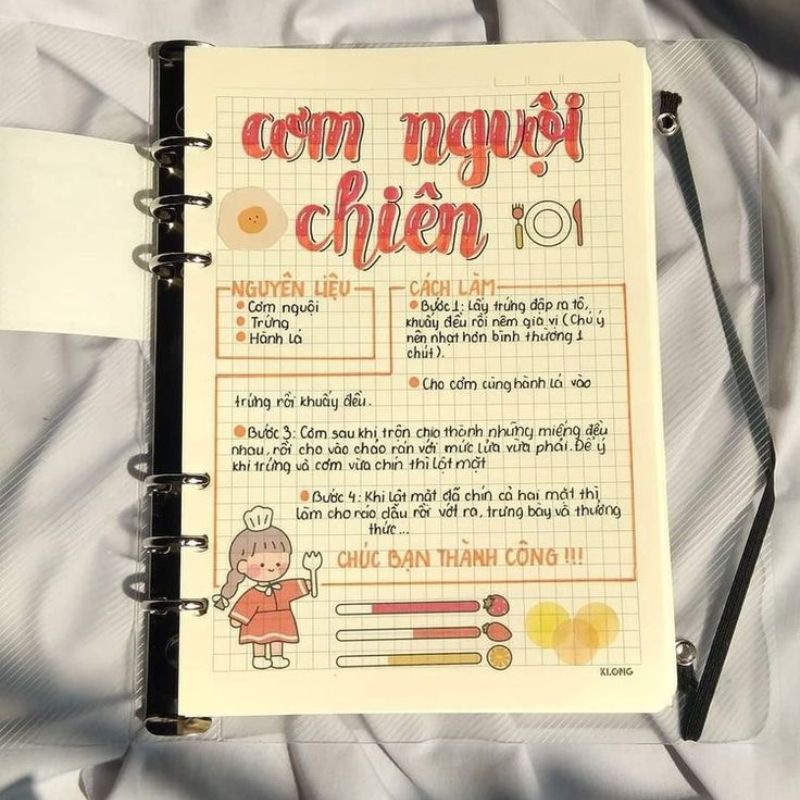 cơm nguội
chiên
NGUYÊN LIỆU
Cơm nguội
Trứng
Hành lá
CÁCH LÀM
Bước 1: Lấy trứng đập ra tô,
khuấy đều rồi nêm gia vị (Chú ý
nên nhạt hơn bình thường 1
chút).
Cho cơm cùng hành lá vào
trứng rồi khuấy đều.
Bước 3: Cơm sau khi trộn chia thành những miếng đều
nhau, rồi cho vào chảo rán với mức lửa vừa phải. Để ý
khi trứng và cơm vừa chín thì lật mặt
Bước 4: Khi lật mặt đã chín cả hai mặt thì
làm cho ráo dầu rồi vớt ra, trưng bày và thưởng
thức...
CHÚC BẠN THÀNH CÔNG!!!
KLONG